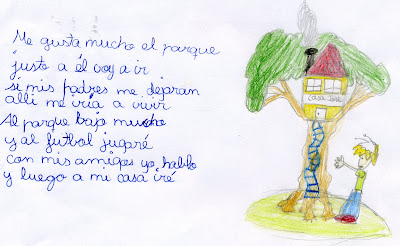 Me gusta mucho el parque
justo a él voy a ir
si mis padres me dejran
alli me iria a vivir
Al parque bajo mucho
y al futbol jugaré
con mis amigos yo hablo
y luego a mi casa iré
casa José